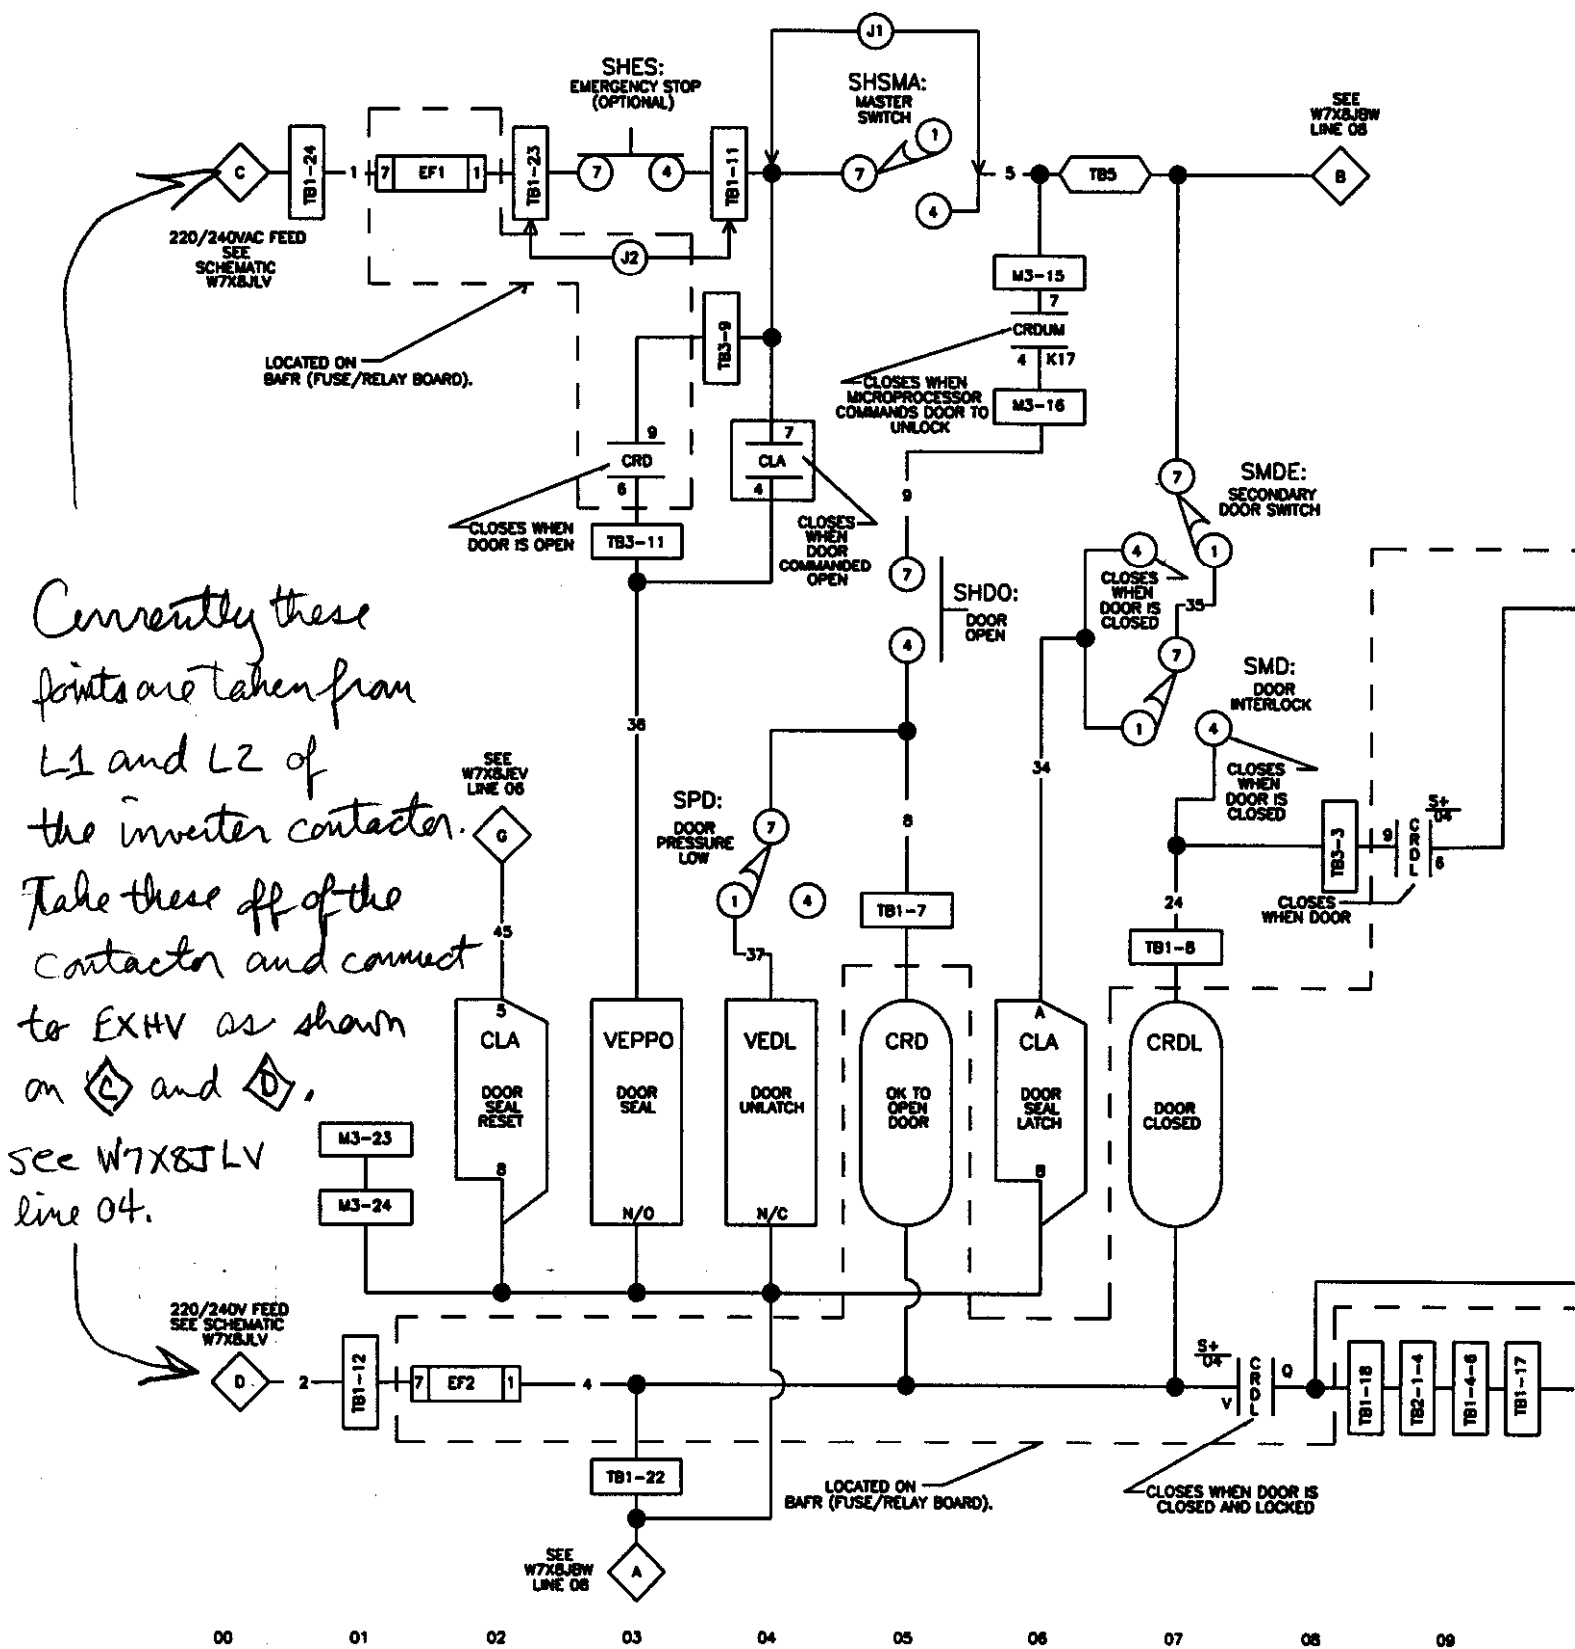 J1
SHES:
EMERGENCY STOP
(OPTIONAL)
SHSMA:
MASTER
SWITCH
SEE
W7X8JBW
LINE 08
C
TB1-24
1
7 EF1 1
TB1-23
7
4
TB1-11
7
1
4
5
TB5
B
220/240VAC FEED
SEE
SCHEMATIC
W7X8JLV
J2
M3-15
7
CRDUM
4 K17
M3-16
TB3-9
LOCATED ON
BAFR (FUSE/RELAY BOARD).
CLOSES WHEN
MICROPROCESSOR
COMMANDS DOOR TO
UNLOCK
9
CRD
6
7
CLA
4
CLOSES WHEN
DOOR IS OPEN
TB3-11
CLOSES
WHEN
DOOR
COMMANDED
OPEN
9
7
SHDO:
DOOR
OPEN
4
7
SMDE:
SECONDARY
DOOR SWITCH
4
1
CLOSES
WHEN
DOOR IS
CLOSED
35
7
SMD:
DOOR
INTERLOCK
1
4
CLOSES
WHEN
DOOR IS
CLOSED
Currently these
points are taken from
L1 and L2 of
the inverter contactor.
Take these off of the
contactor and connect
to EXHV as shown
on C and D.
see W7X8JLV
line 04.
38
34
SEE
W7X8JEV
LINE 06
G
45
SPD:
DOOR
PRESSURE
LOW
7
1
4
37
8
TB1-7
24
TB1-8
TB3-3
9
CRDL
S+
04
6
CLOSES
WHEN DOOR
5
CLA
DOOR
SEAL
RESET
8
VEPPO
DOOR
SEAL
N/O
VEDL
DOOR
UNLATCH
N/C
CRD
OK TO
OPEN
DOOR
A
CLA
DOOR
SEAL
LATCH
B
CRDL
DOOR
CLOSED
M3-23
M3-24
220/240V FEED
SEE SCHEMATIC
W7X8JLV
D
2
TB1-12
7 EF2 1
4
S+
04
V
CRDL
Q
TB1-18
TB2-1-4
TB1-4-6
TB1-17
TB1-22
LOCATED ON
BAFR (FUSE/RELAY BOARD).
CLOSES WHEN DOOR IS
CLOSED AND LOCKED
SEE
W7X8JBW
LINE 08
A
00 01 02 03 04 05 06 07 08 09